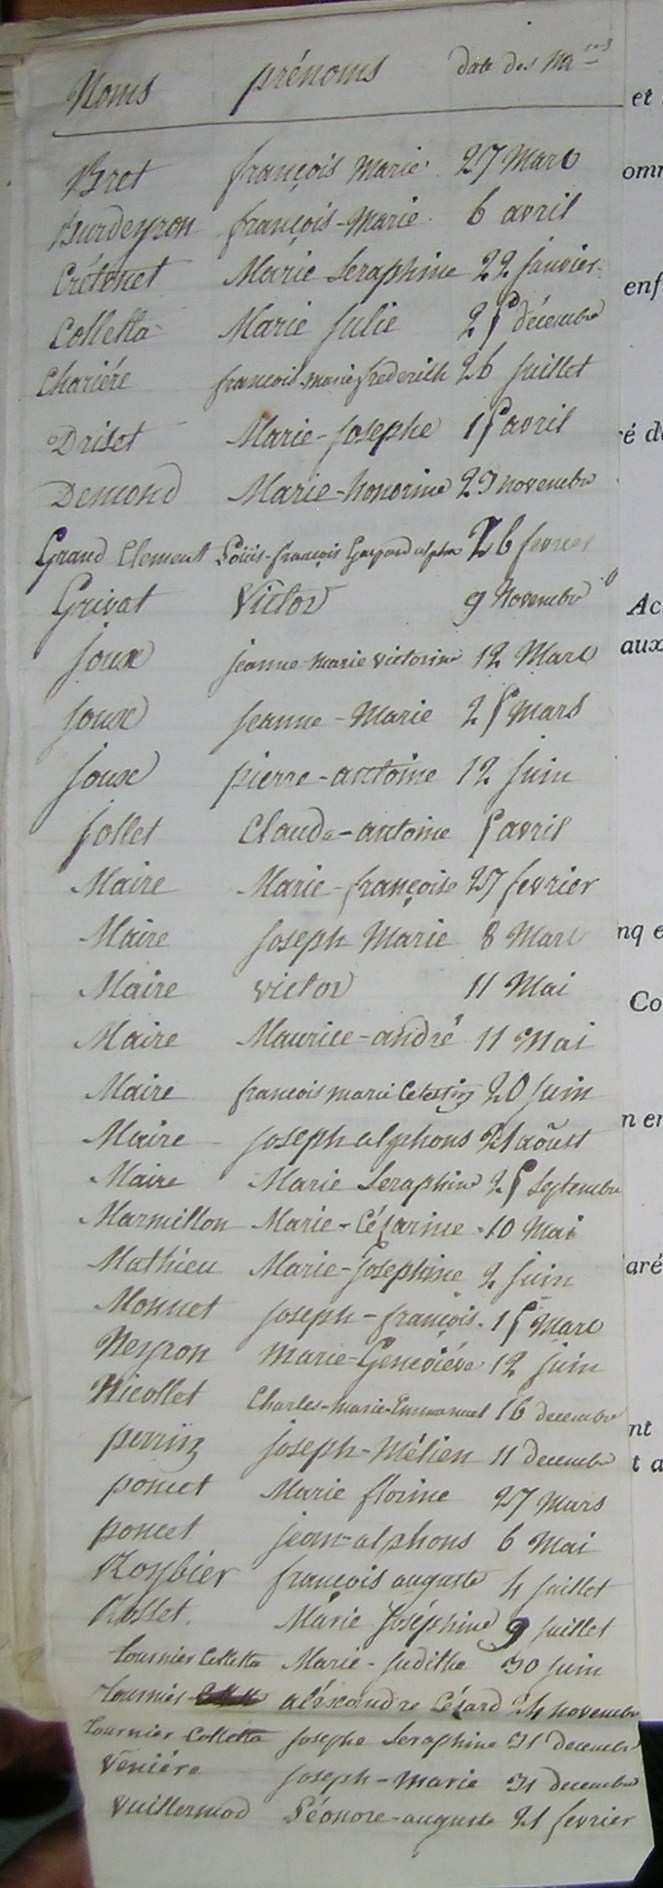 Noms prénoms date des N.ces
Bret françois Marie 27 Mars
Burdeyron françois-Marie 6 avril
Crétenet Marie Seraphine 22 janvier
Colletta Marie Julie 25 décembre
Chariére françois-marie frederick 26 juillet
Driset Marie-Josephe 15 avril
Demond Marie-honorine 29 novembre
Grand Clement Loüis-françois alpha 26 fevrier
Grivat Victor 9 Novembre
Joux jeanne-marie victorine 12 Mars
Joux Jeanne-Marie 25 Mars
Joux pierre-antoine 12 Juin
Jollet Claude-antoine 5 avril
Maire Marie-françoise 27 fevrier
Maire Joseph Marie 8 Mars
Maire victor 11 Mai
Maire Maurice-andré 11 Mai
Maire francois marie Celestin 20 Juin
Maire Joseph alphons 21 aoûst
Maire Marie Seraphine 25 Septembre
Marmillon Marie-Cézarine 10 Mai
Mathieu Marie-Josephine 2 Juin
Monnet Joseph-françois 15 Mars
Neyron Marie-Geneviéve 12 Juin
Nicollet Charles-Marie-Emmanuel 16 decembre
perrin Joseph-Mélien 11 decembre
poncet Marie florine 27 Mars
poncet jean-alphons 6 Mai
françois auguste 4 juillet
Rosset Marie Joséphine 9 juillet
tournier Colletta Marie-Judithe 30 Juin
tournier aléxandre Cézard 24 novembre
tournier Colletta Josephe Seraphine 31 decembre
Veniére Joseph-Marie 31 decembre
Vuillermod Léonore-auguste 21 fevrier
et
omm
enf
é d
Ac
aux
nq e
Co
n en
laré
nt
t a